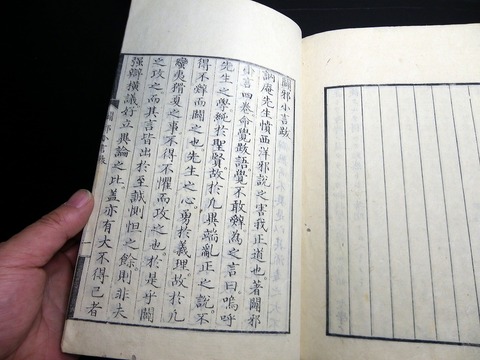 闢邪小言跋
訥庵先生憤西洋邪説之害我正道也著闢邪
小言四卷命覺跋語覺不敢辭為之言曰嗚呼
先生之學純於聖賢。故於凡異端亂正之説。不
得不辭而闢之也。先生之心。勇於義理。故於凡
蠻夷猾夏之事。不得不懼而攻之也。於是乎闢
之攻之。而其言皆出於至誠惻怛之餘。則非夫
强辯横議。好立異論之比。蓋亦有大不得已者
闢邪小言跋 一